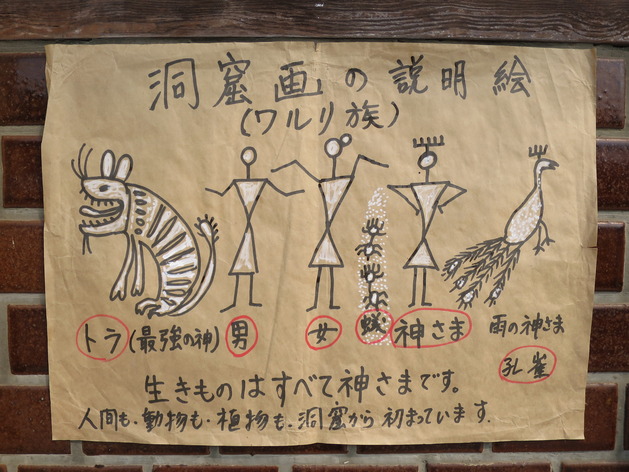 洞窟画の説明絵
(ワルリ族)
トラ(最強の神) 男 女 蟻 神さま 雨の神さま
孔雀
生きものはすべて神さまです。
人間も・動物も・植物も、洞窟から初まっています.